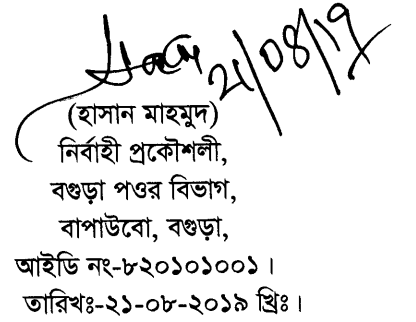 ২১/০৪/১৭
(হাসান মাহমুদ)
নির্বাহী প্রকৌশলী,
বগুড়া পওর বিভাগ,
বাপাউবো, বগুড়া,
আইডি নং-৮২০১০১০০১।
তারিখঃ-২১-০৮-২০১৯ খ্রিঃ।